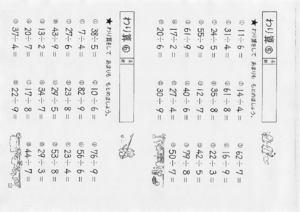 わり算 ⑤
★わり算をして、あまりも もとめましょう。
① 11÷6＝ 14÷4＝ 62÷7＝
② 31÷4＝ 61÷8＝ 16÷9＝
③ 24÷5＝ 35÷8＝ 22÷3＝
④ 55÷9＝ 12÷7＝ 42÷5＝
⑤ 61÷9＝ 40÷6＝ 79÷8＝
⑥ 17÷2＝ 27÷4＝ 60÷8＝
⑦ 20÷6＝ 30÷9＝ 50÷7＝
わり算 ⑥
★わり算をして、あまりも もとめましょう。
① 38÷5＝ 10÷6＝ 76÷9＝
② 7÷4＝ 82÷9＝ 56÷6＝
③ 27÷6＝ 23÷8＝ 23÷4＝
④ 43÷5＝ 29÷5＝ 53÷8＝
⑤ 13÷2＝ 31÷8＝ 29÷3＝
⑥ 20÷7＝ 17÷8＝ 44÷7＝
⑦ 37÷4＝ 22÷9＝